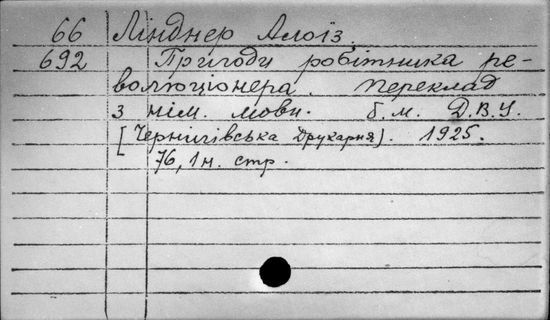 66 Лінднер Алоіз.
692 Пригоди робітника ре-
волюціонера. Переклад
з нім. мови. б.м. Д.В.У.
[Чернигівська Друкарня]. 1925.
76, 1 н. стр.